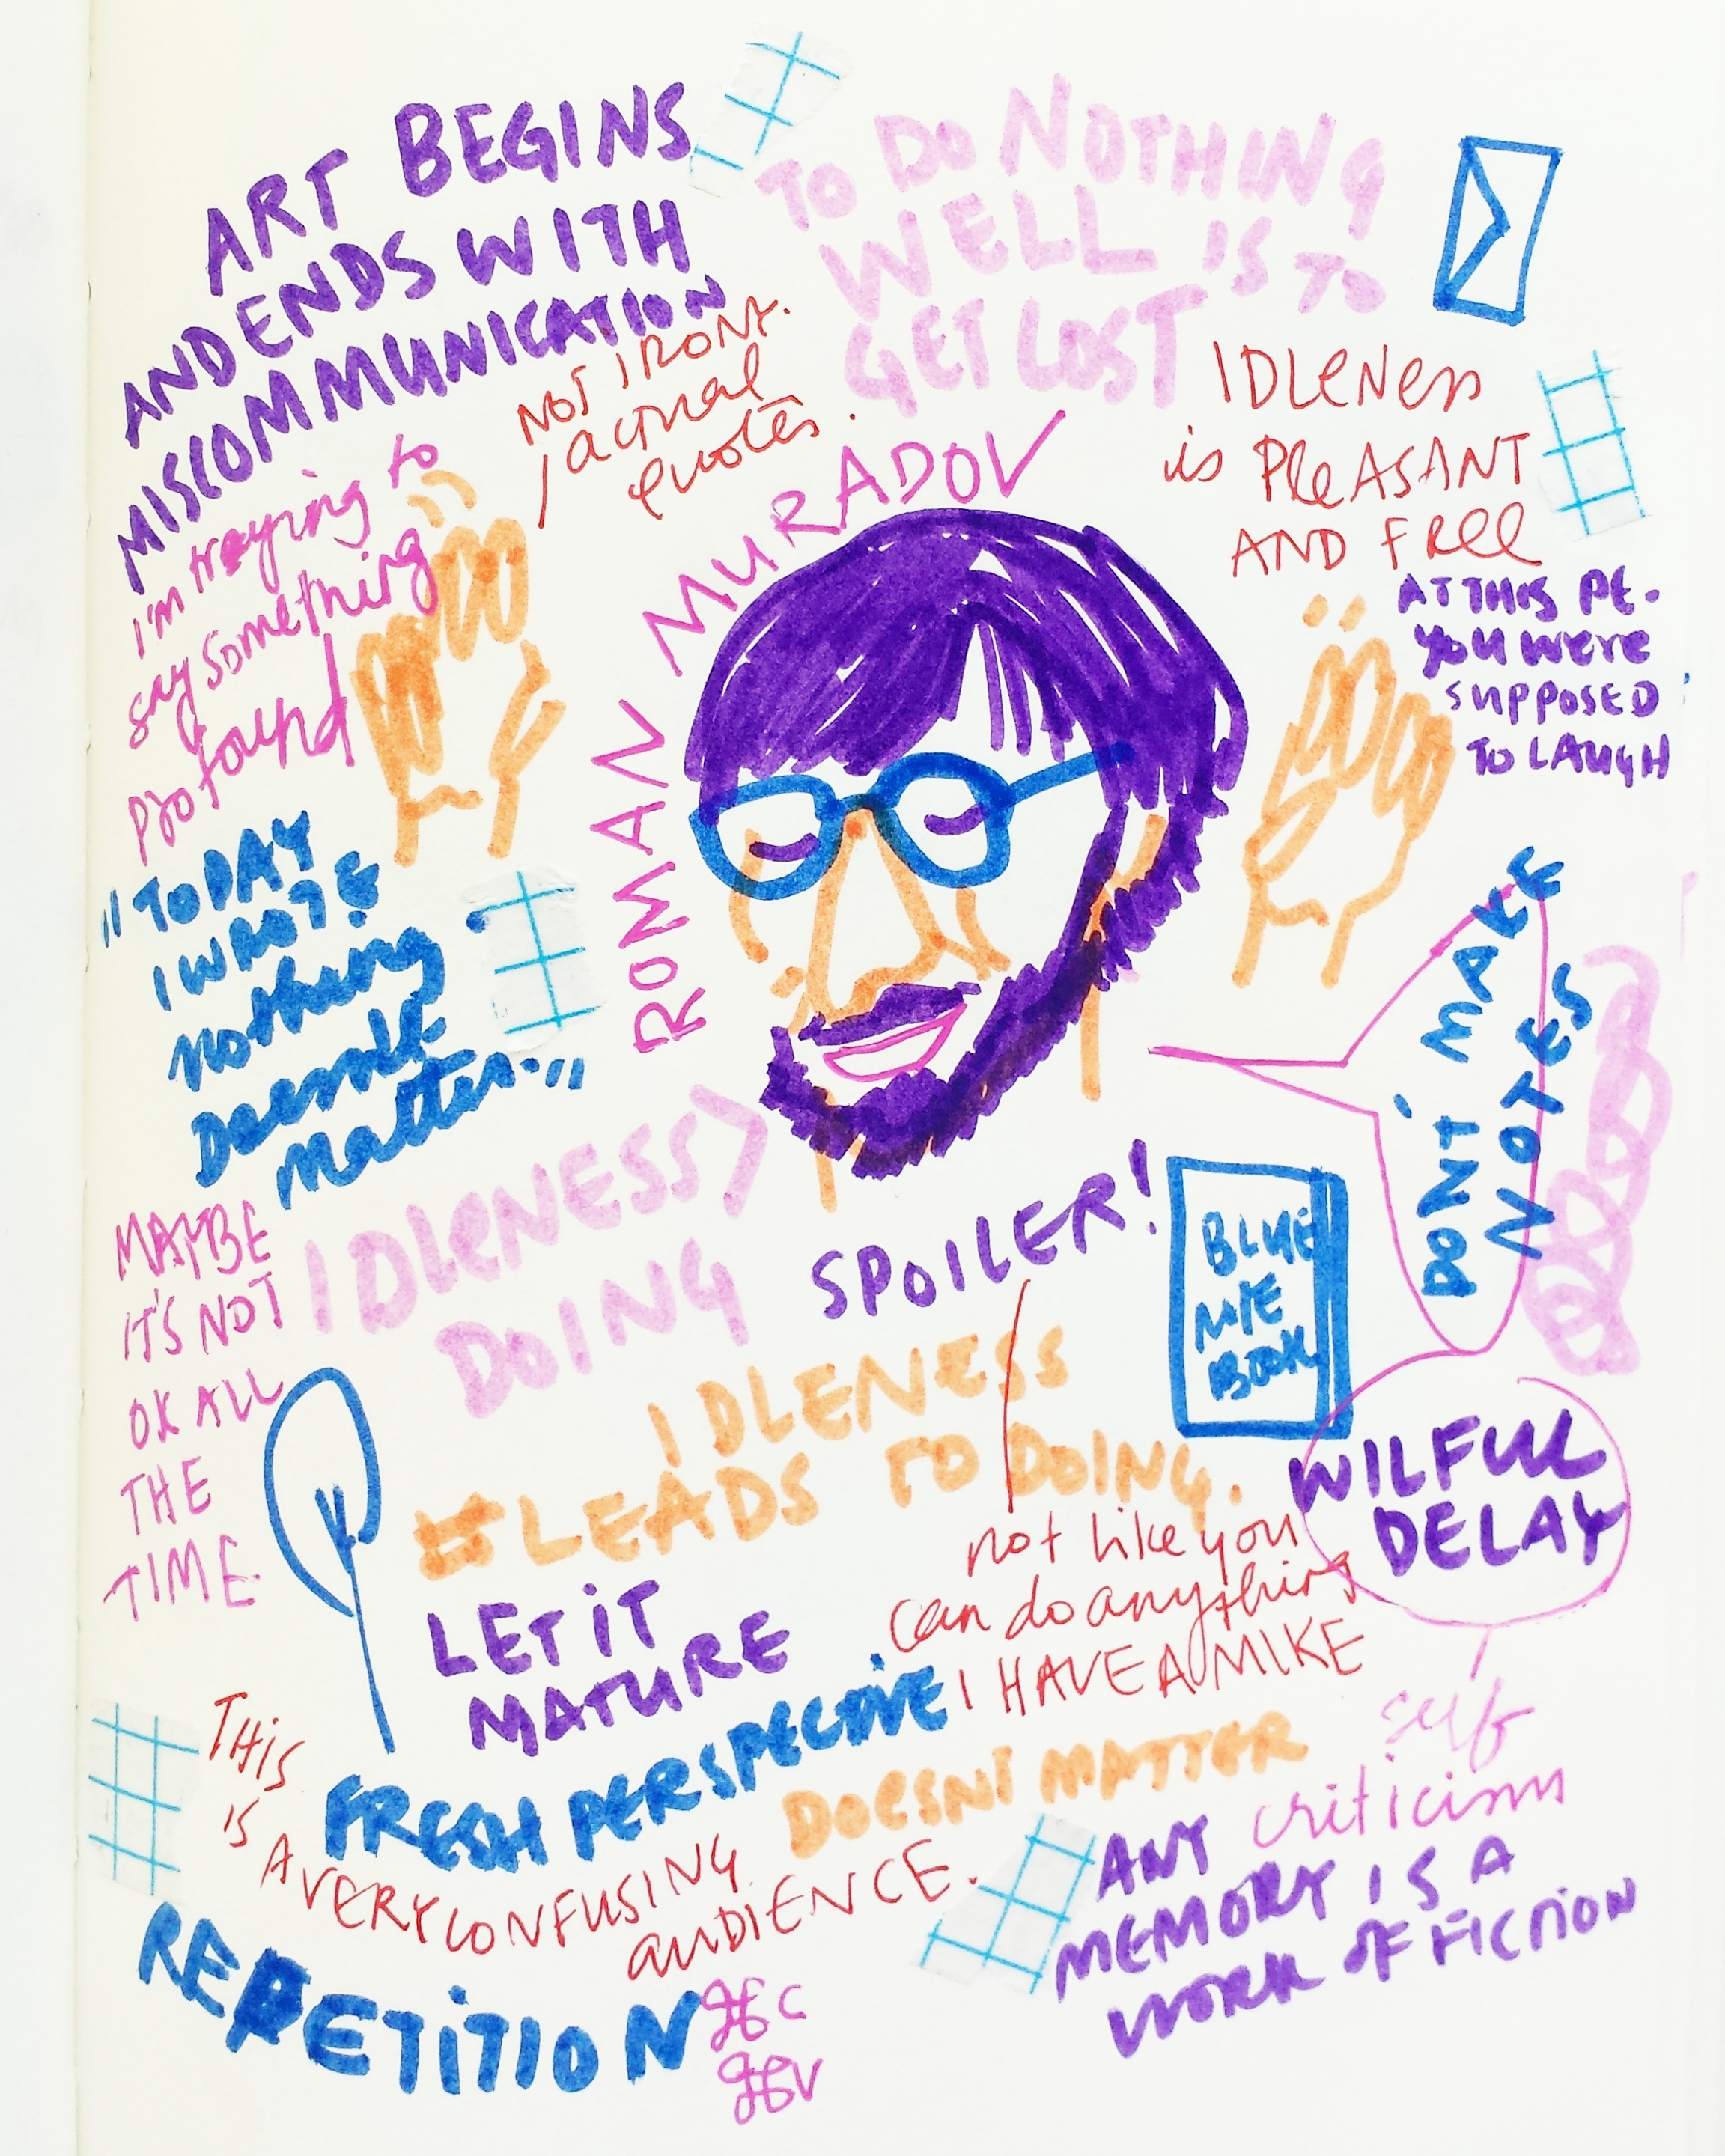 ART BEGINS
AND ENDS WITH
MISCOMMUNICATION
NOT IRONY.
actual
quotes.
TO DO NOTHING
WELL IS TO
GET LOST
IDLENESS
is PLEASANT
AND FREE
AT THIS PE.
YOU WERE
SUPPOSED
TO LAUGH
I'm trying to
say something
profound
ROMAN MURADOV
"TODAY
I WROTE
nothing
Doesn't
Matter."
DON'T MAKE
NOTES
IDLENESS >
DOING
SPOILER!
BLUE
BOOK
MAYBE
IT'S NOT
OK ALL
THE
TIME.
IDLENESS
LEADS TO DOING.
WILFUL
DELAY
not like you
can do anything
I HAVE A MIKE
LET IT
MATURE
FRESH PERSPECTIVE
DOESNT MATTER
self
criticism
THIS
IS
A VERY CONFUSING
AUDIENCE.
ANY
MEMORY IS A
WORK OF FICTION
REPETITION